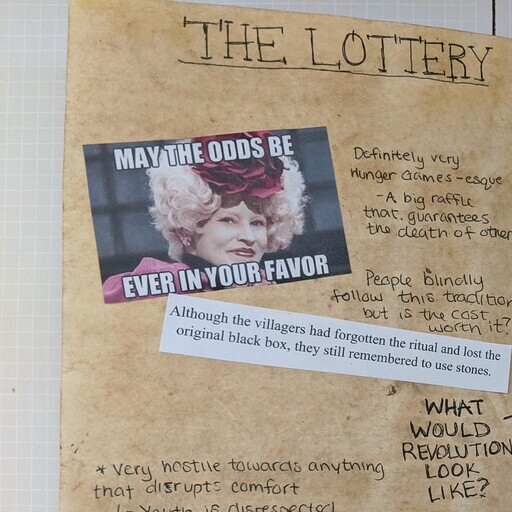 THE LOTTERY
MAY THE ODDS BE
EVER IN YOUR FAVOR
Definitely very
Hunger Games-esque
- A big raffle
that guarantees
the death of other
People blindly
follow this tradition
but is the cost
worth it?
Although the villagers had forgotten the ritual and lost the
original black box, they still remembered to use stones.
WHAT
WOULD
REVOLUTION
LOOK
LIKE?
* Very hostile towards anything
that disrupts comfort
Youth is disrespected